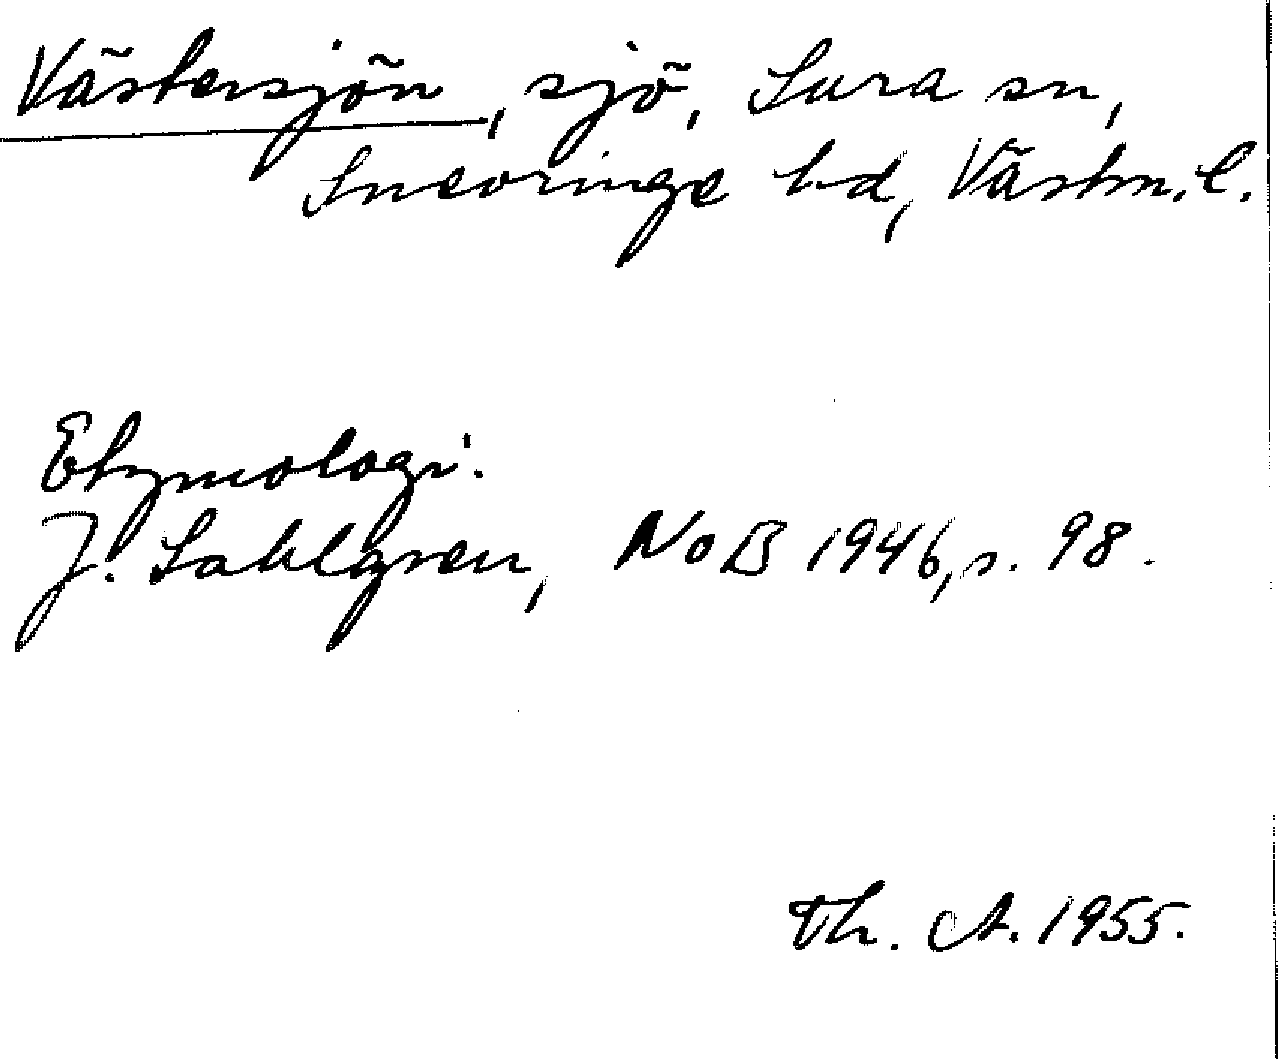 Västersjön, sjö, Sura sn,
Snevringe hd, Västm. l.
Etymologi.
J. Sahlgren, NoB 1946, s. 98.
Th. A. 1955.